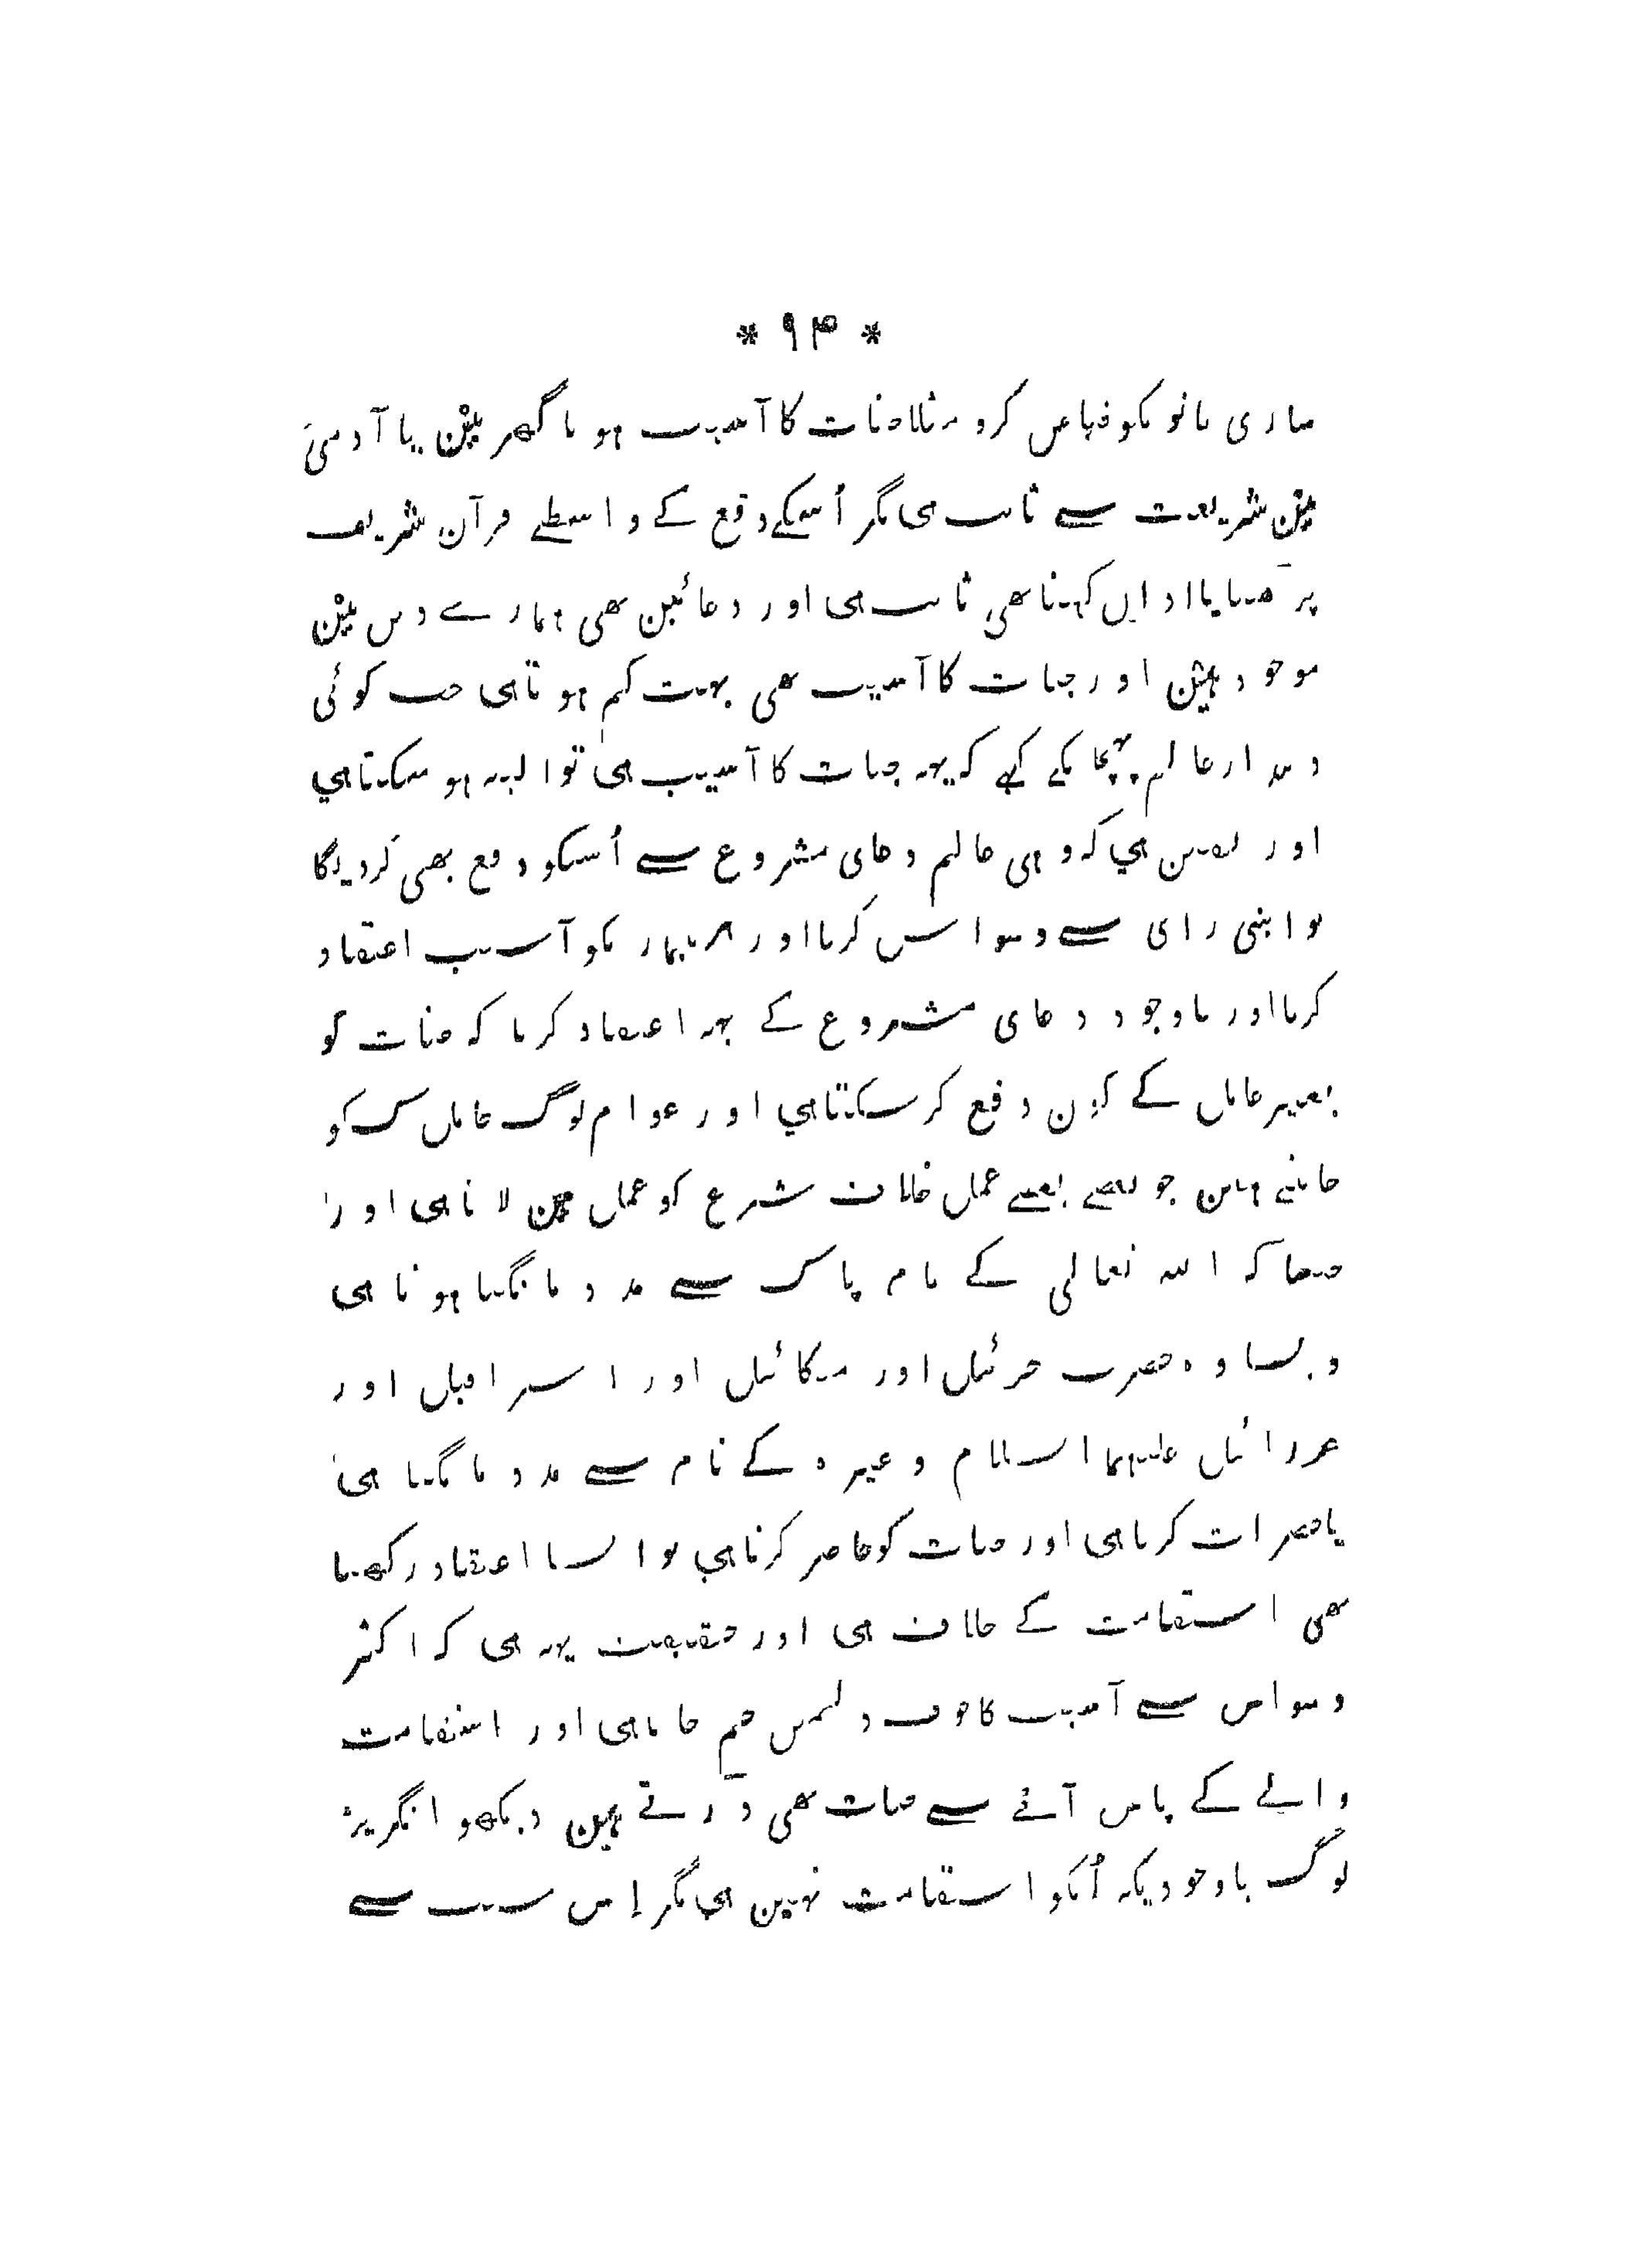 * ۹۴ *
ساری باتونکو قیاس کرو مثلا جنات کا آسیب ہونا گھر مین یا آدمی
مین شریعت سے ثابت ہی مگر اُسکے دفع کے واسطے قرآن شریف
پڑھنا یا اذان کہنا بھی ثابت ہی اور دعائین بھی ہمارے دین مین
موجود ہین اور جنات کا آسیب بھی بہت کم ہوتا ہی جب کوئی
دیندار عالم پہچانکے کہے کہ یہہ جنات کا آسیب ہی تو البتہ ہو سکتا ہی
اور یقین ہی کہ وہی عالم دعای مشروع سے اُسکو دفع بھی کردیگا
تو اپنی رای سے وسواس کرنا اور ہر بیمار کو آسیب اعتقاد
کرنا اور باوجود دعای مشروع کے یہہ اعتقاد کرنا کہ جنات کو
بغیر عامل کے کون دفع کر سکتا ہی اور عوام لوگ عامل کسکو
جانتے ہین جو بعضے بعضے عمل خلاف شرع کو عمل مین لاتا ہی اور
جیسا کہ اللہ تعالی کے نام پاک سے مدد مانگنا ہوتا ہی
ویسا وہ حضرت جبرئیل اور میکائیل اور اسرافیل اور
عزرائیل علیہما السلام وغیرہ کے نام سے مدد مانگتا ہی
یا حضرات کرتا ہی اور جنات کو حاضر کرتا ہی تو ایسا اعتقاد رکھنا
بھی استقامت کے خلاف ہی اور حقیقت یہہ ہی کہ اکثر
وسواس سے آسیب کا خوف دلمین جم جاتا ہی اور استقامت
والے کے پاس آنے سے جنات بھی ڈرتے ہین دیکھو انگریز
لوگ باوجودیکہ اُنکو استقامت نہین ہی مگر اِس سبب سے